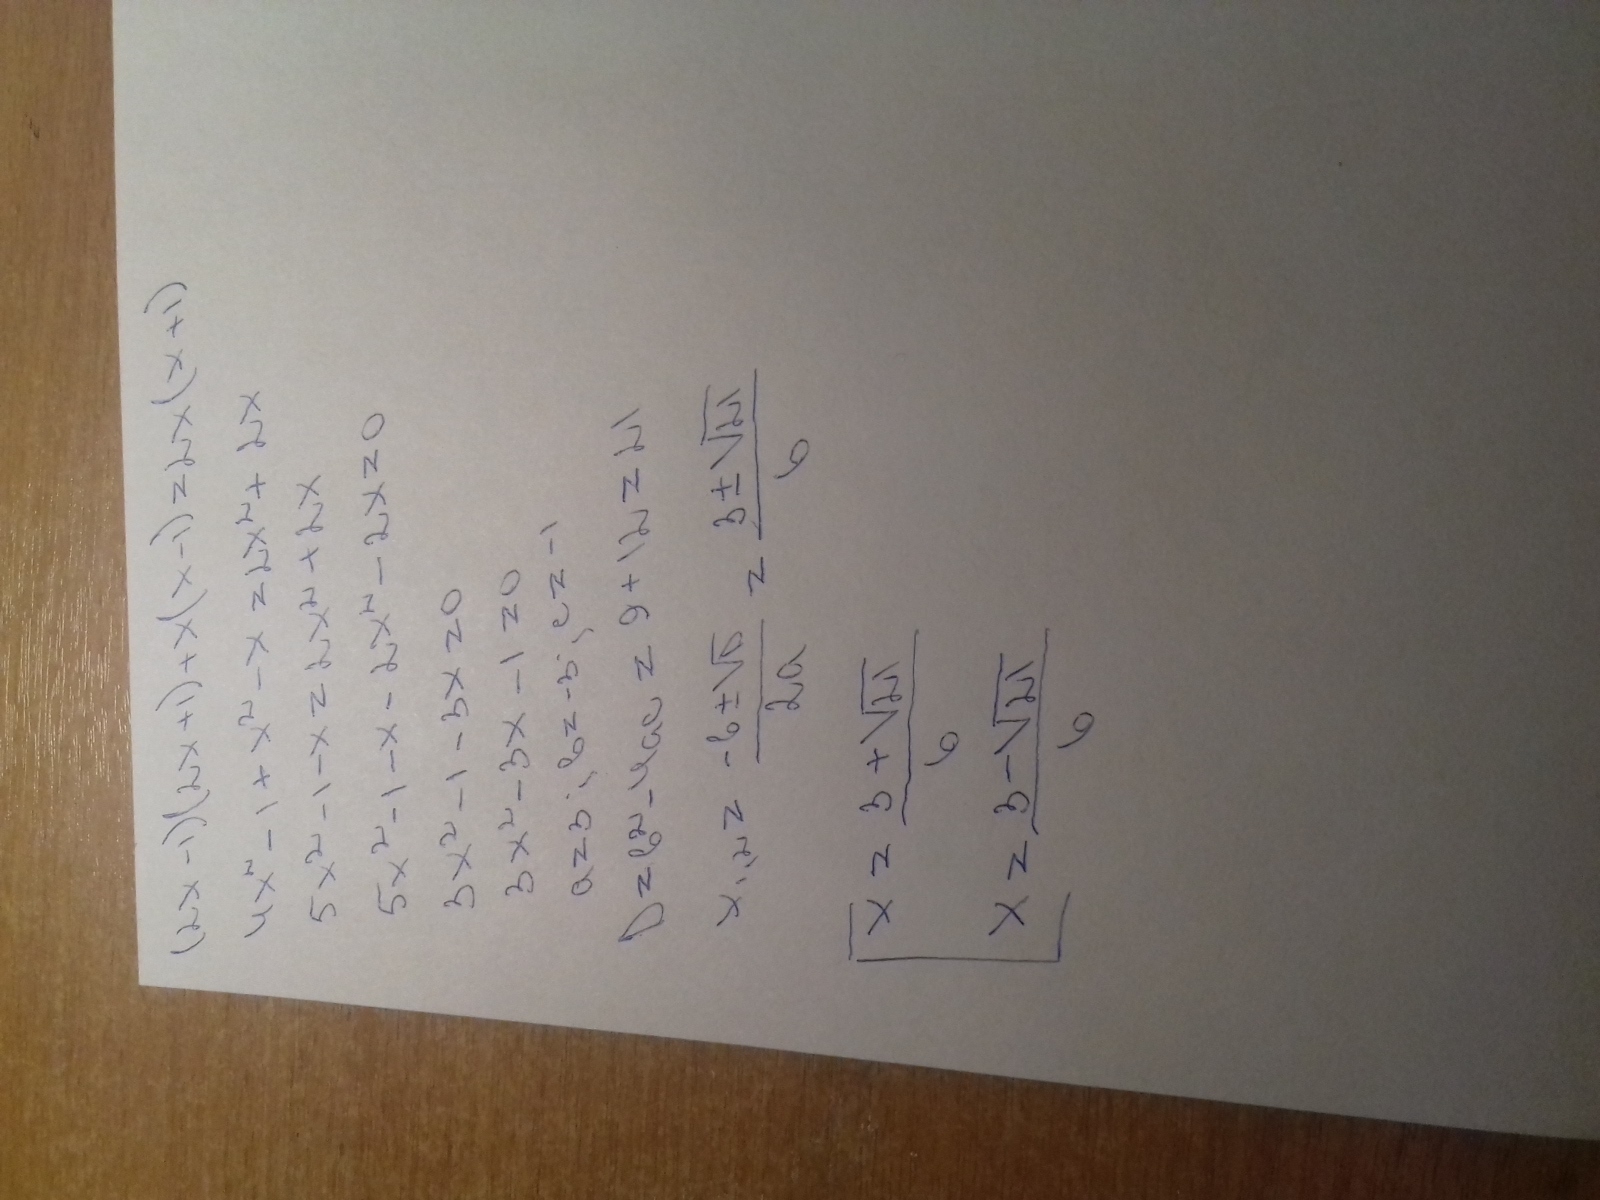 (2x-1)(2x+1)+x(x-1)=2x(x+1)
4x²-1+x²-x=2x²+2x
5x²-1-x=2x²+2x
5x²-1-x-2x²-2x=0
3x²-1-3x=0
3x²-3x-1=0
a=3; b=-3; c=-1
D=b²-4ac=9+12=21
x₁,₂=(-b±√D)/2a=(3±√21)/6
[x=(3+√21)/6
x=(3-√21)/6